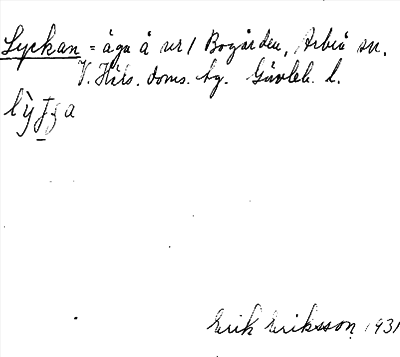 Lyckan = äga å nr 1 Bogården, Arbrå sn.
V. Häls. doms. hg. Gävleb. l.
Erik Eriksson 1931